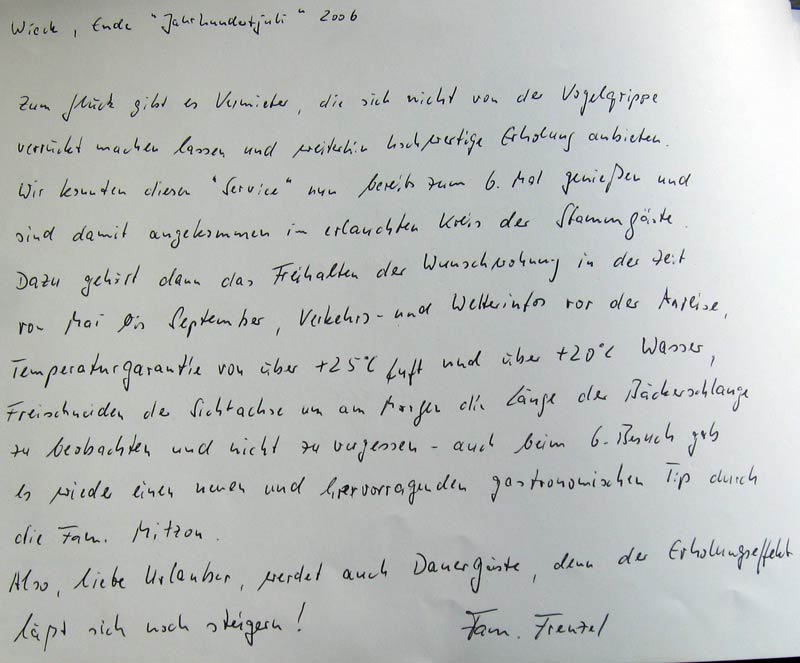 Wieck, Ende "Jahrhundertjuli" 2006
Zum Glück gibt es Vermieter, die sich nicht von der Vogelgrippe
verrückt machen lassen und weiterhin hochwertige Erholung anbieten.
Wir konnten diesen "Service" nun bereits zum 6. Mal genießen und
sind damit angekommen im erlauchten Kreis der Stammgäste.
Dazu gehört dann das Freihalten der Wunschwohnung in der Zeit
von Mai bis September, Verkehrs- und Wetterinfos vor der Anreise,
Temperaturgarantie von über +25°C Luft und über +20°C Wasser,
Freischneiden der Sichtachse um am Morgen die Länge der Bäckerschlange
zu beobachten und nicht zu vergessen - auch beim 6. Besuch gab
es wieder einen neuen und hervorragenden gastronomischen Tip durch
die Fam. Mitzon.
Also, liebe Urlauber, werdet auch Dauergäste, denn der Erholungseffekt
läßt sich noch steigern! Fam. Frenzel